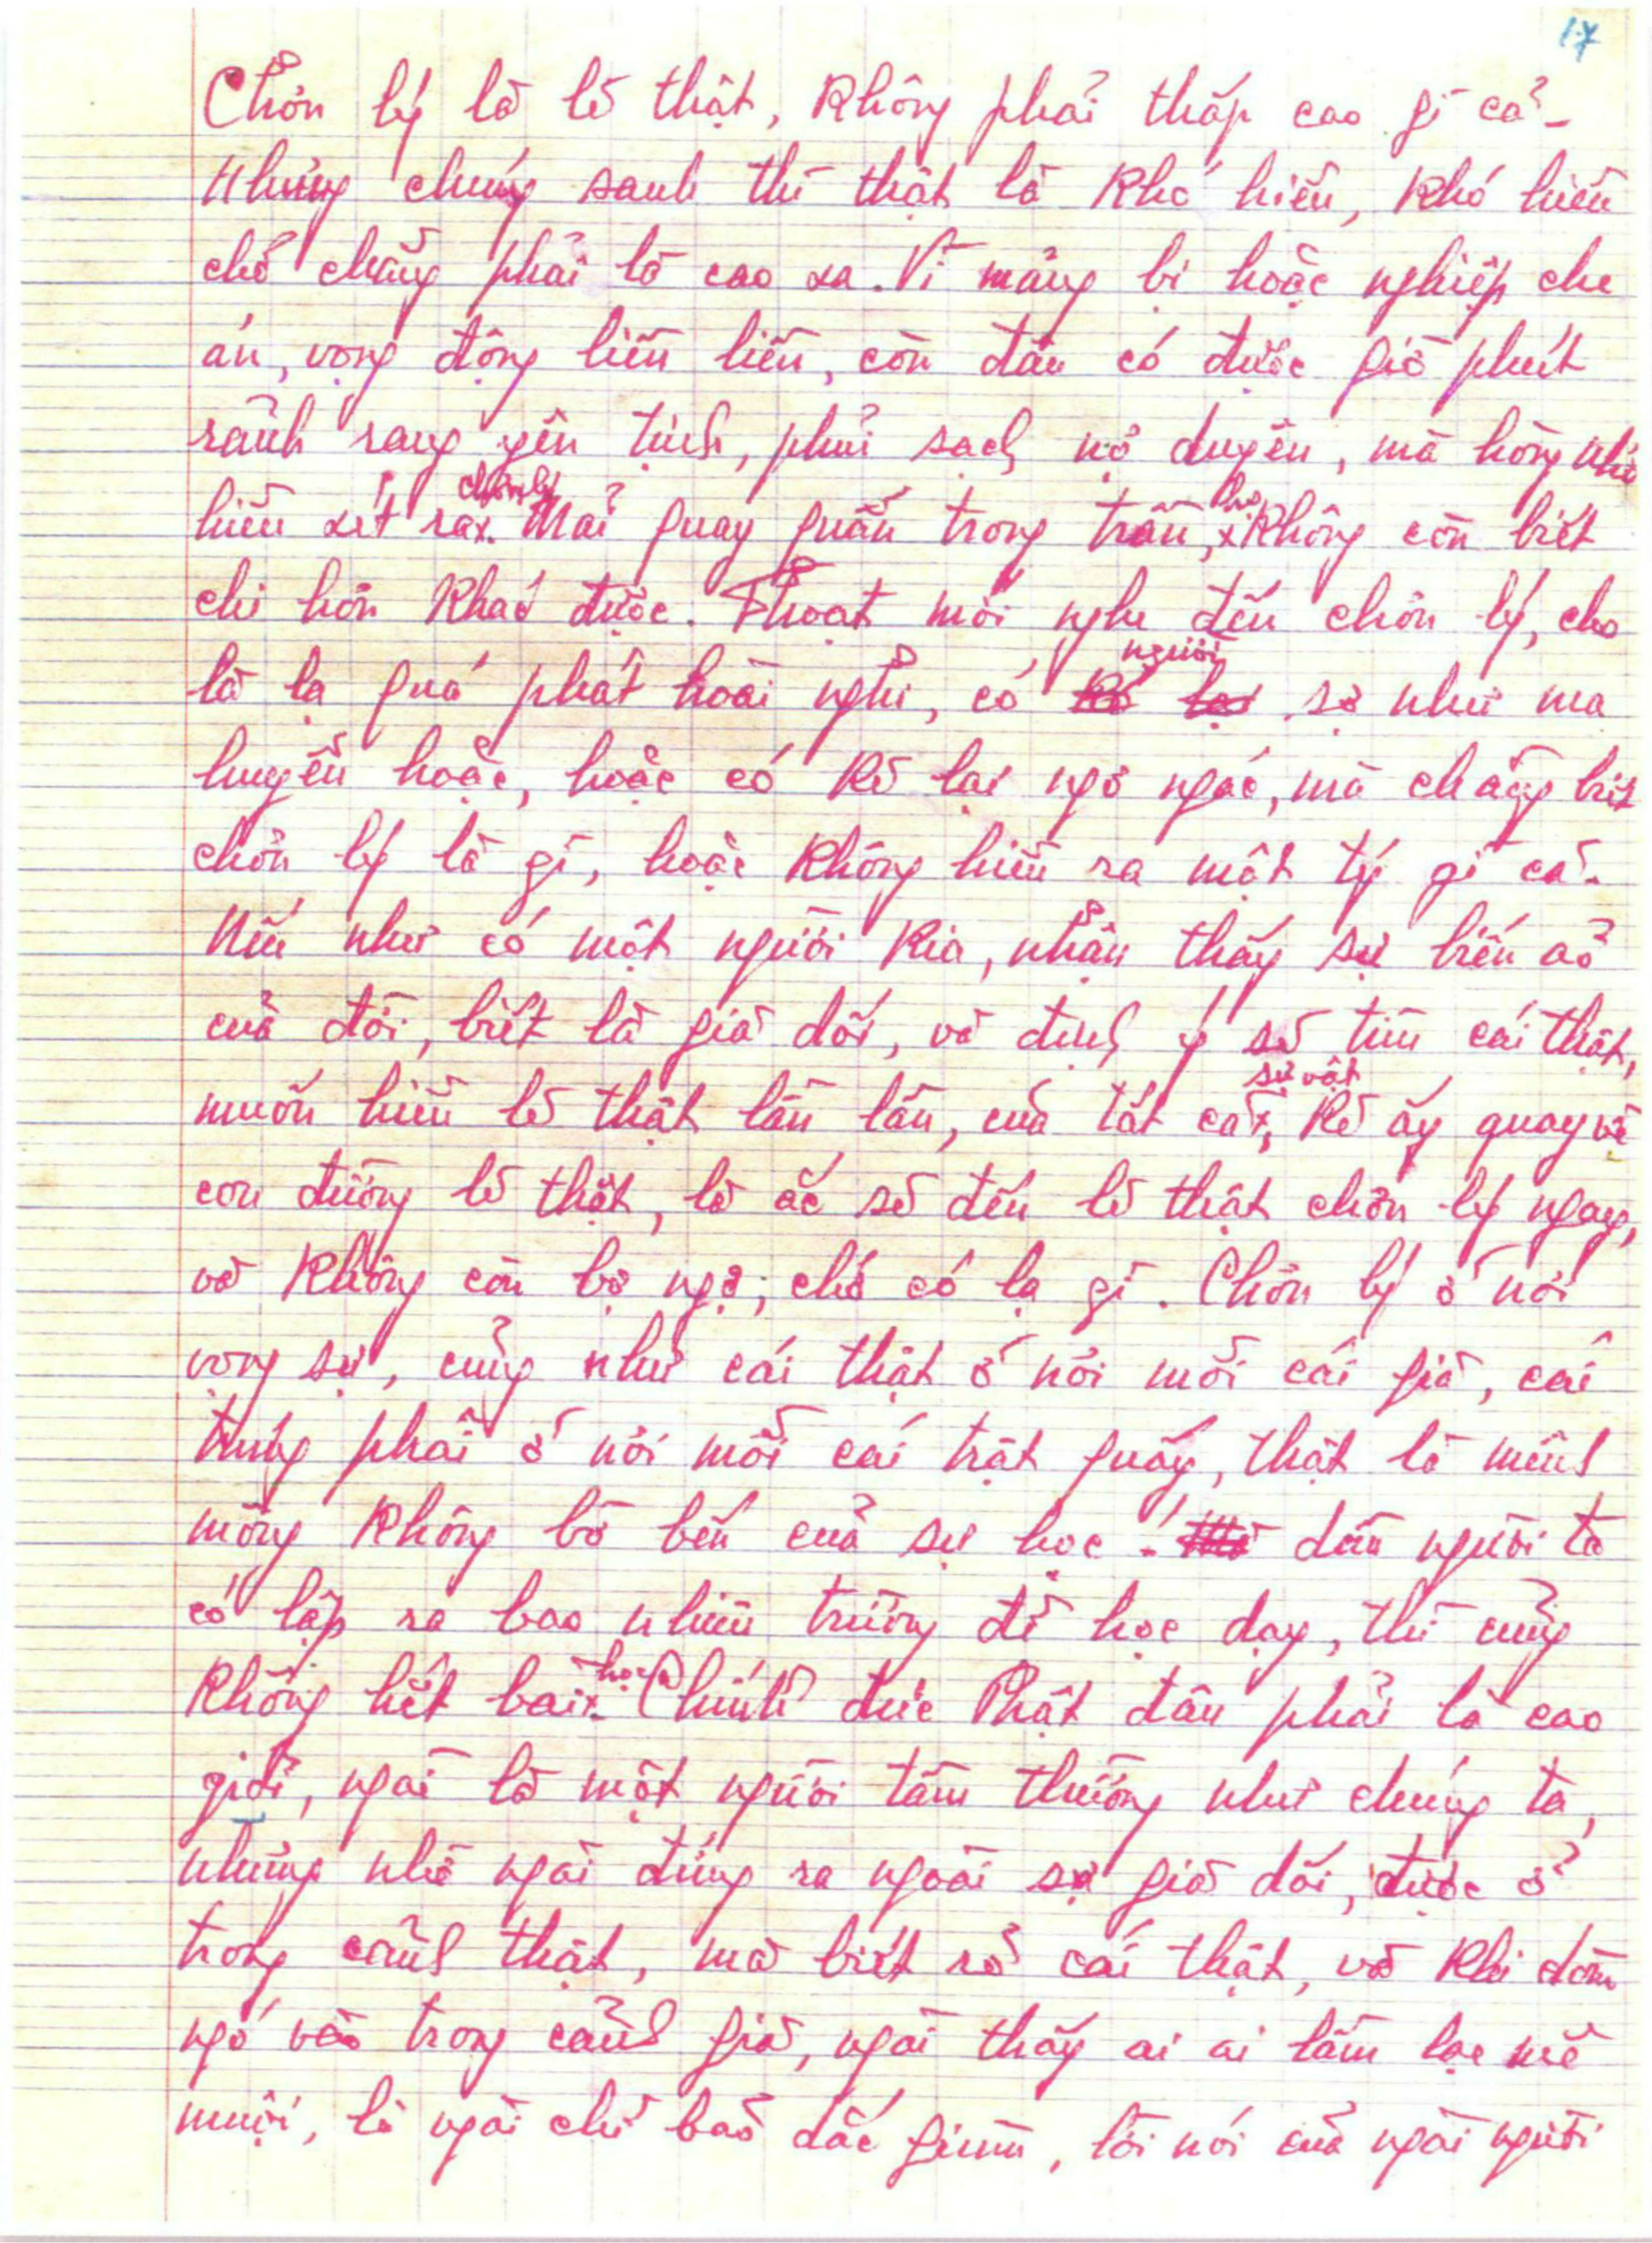 17
Chơn lý là lẽ thật, không phải thấp cao gì cả.
Nhưng chúng sanh thì thật là khó hiểu, khó hiểu
chớ chẳng phải là cao xa. Vì mảng bị hoặc nghiệp che
án, vọng động liền liền, còn đâu có được giờ phút
rảnh rang yên tịnh, phủi sạch nợ duyên, mà hòng nhìn
hiểu xét ra chơn lý. Mãi quay quần trong trần, họ không còn biết
chi hơn khác được. Thoạt mới nghe đến chơn lý, cho
là lạ quá phát hoài nghi, có người sợ như ma
huyễn hoặc, hoặc có kẻ lại ngơ ngác, mà chẳng biết
chơn lý là gì, hoặc không hiểu ra một tý gì cả.
Nếu như có một người kia, nhận thấy sự biến ảo
của đời, biết là giả dối, và định ý sẽ tìm cái thật,
muốn hiểu lẽ thật lần lần, của tất cả sự vật, kẻ ấy quay về
con đường lẽ thật, là ắc sẽ đến lẽ thật chơn lý ngay,
và không còn bợ ngợ, chớ có lạ gì. Chơn lý ở nơi
vọng sự, cũng như cái thật ở nơi mỗi cái giả, cái
trúng phải ở nơi mỗi cái trật quấy, thật là mênh
mông không bờ bến của sự học. dầu người ta
có lập ra bao nhiêu trường để học dạy, thì cũng
không hết bài học. Chính đức Phật đâu phải là cao
giỏi, ngài là một người tầm thường như chúng ta,
nhưng nhờ ngài đứng ra ngoài sự giả dối, được ở
trong cảnh thật, mà biết rõ cái thật, và khi dòm
ngó vào trong cảnh giả, ngài thấy ai ai lầm lạc mê
muội, là ngài chỉ bảo dắc giùm, lời nói của ngài người